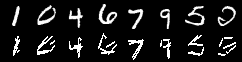 1 0 4 6 7 9 5 0
1 0 4 6 7 9 5 5